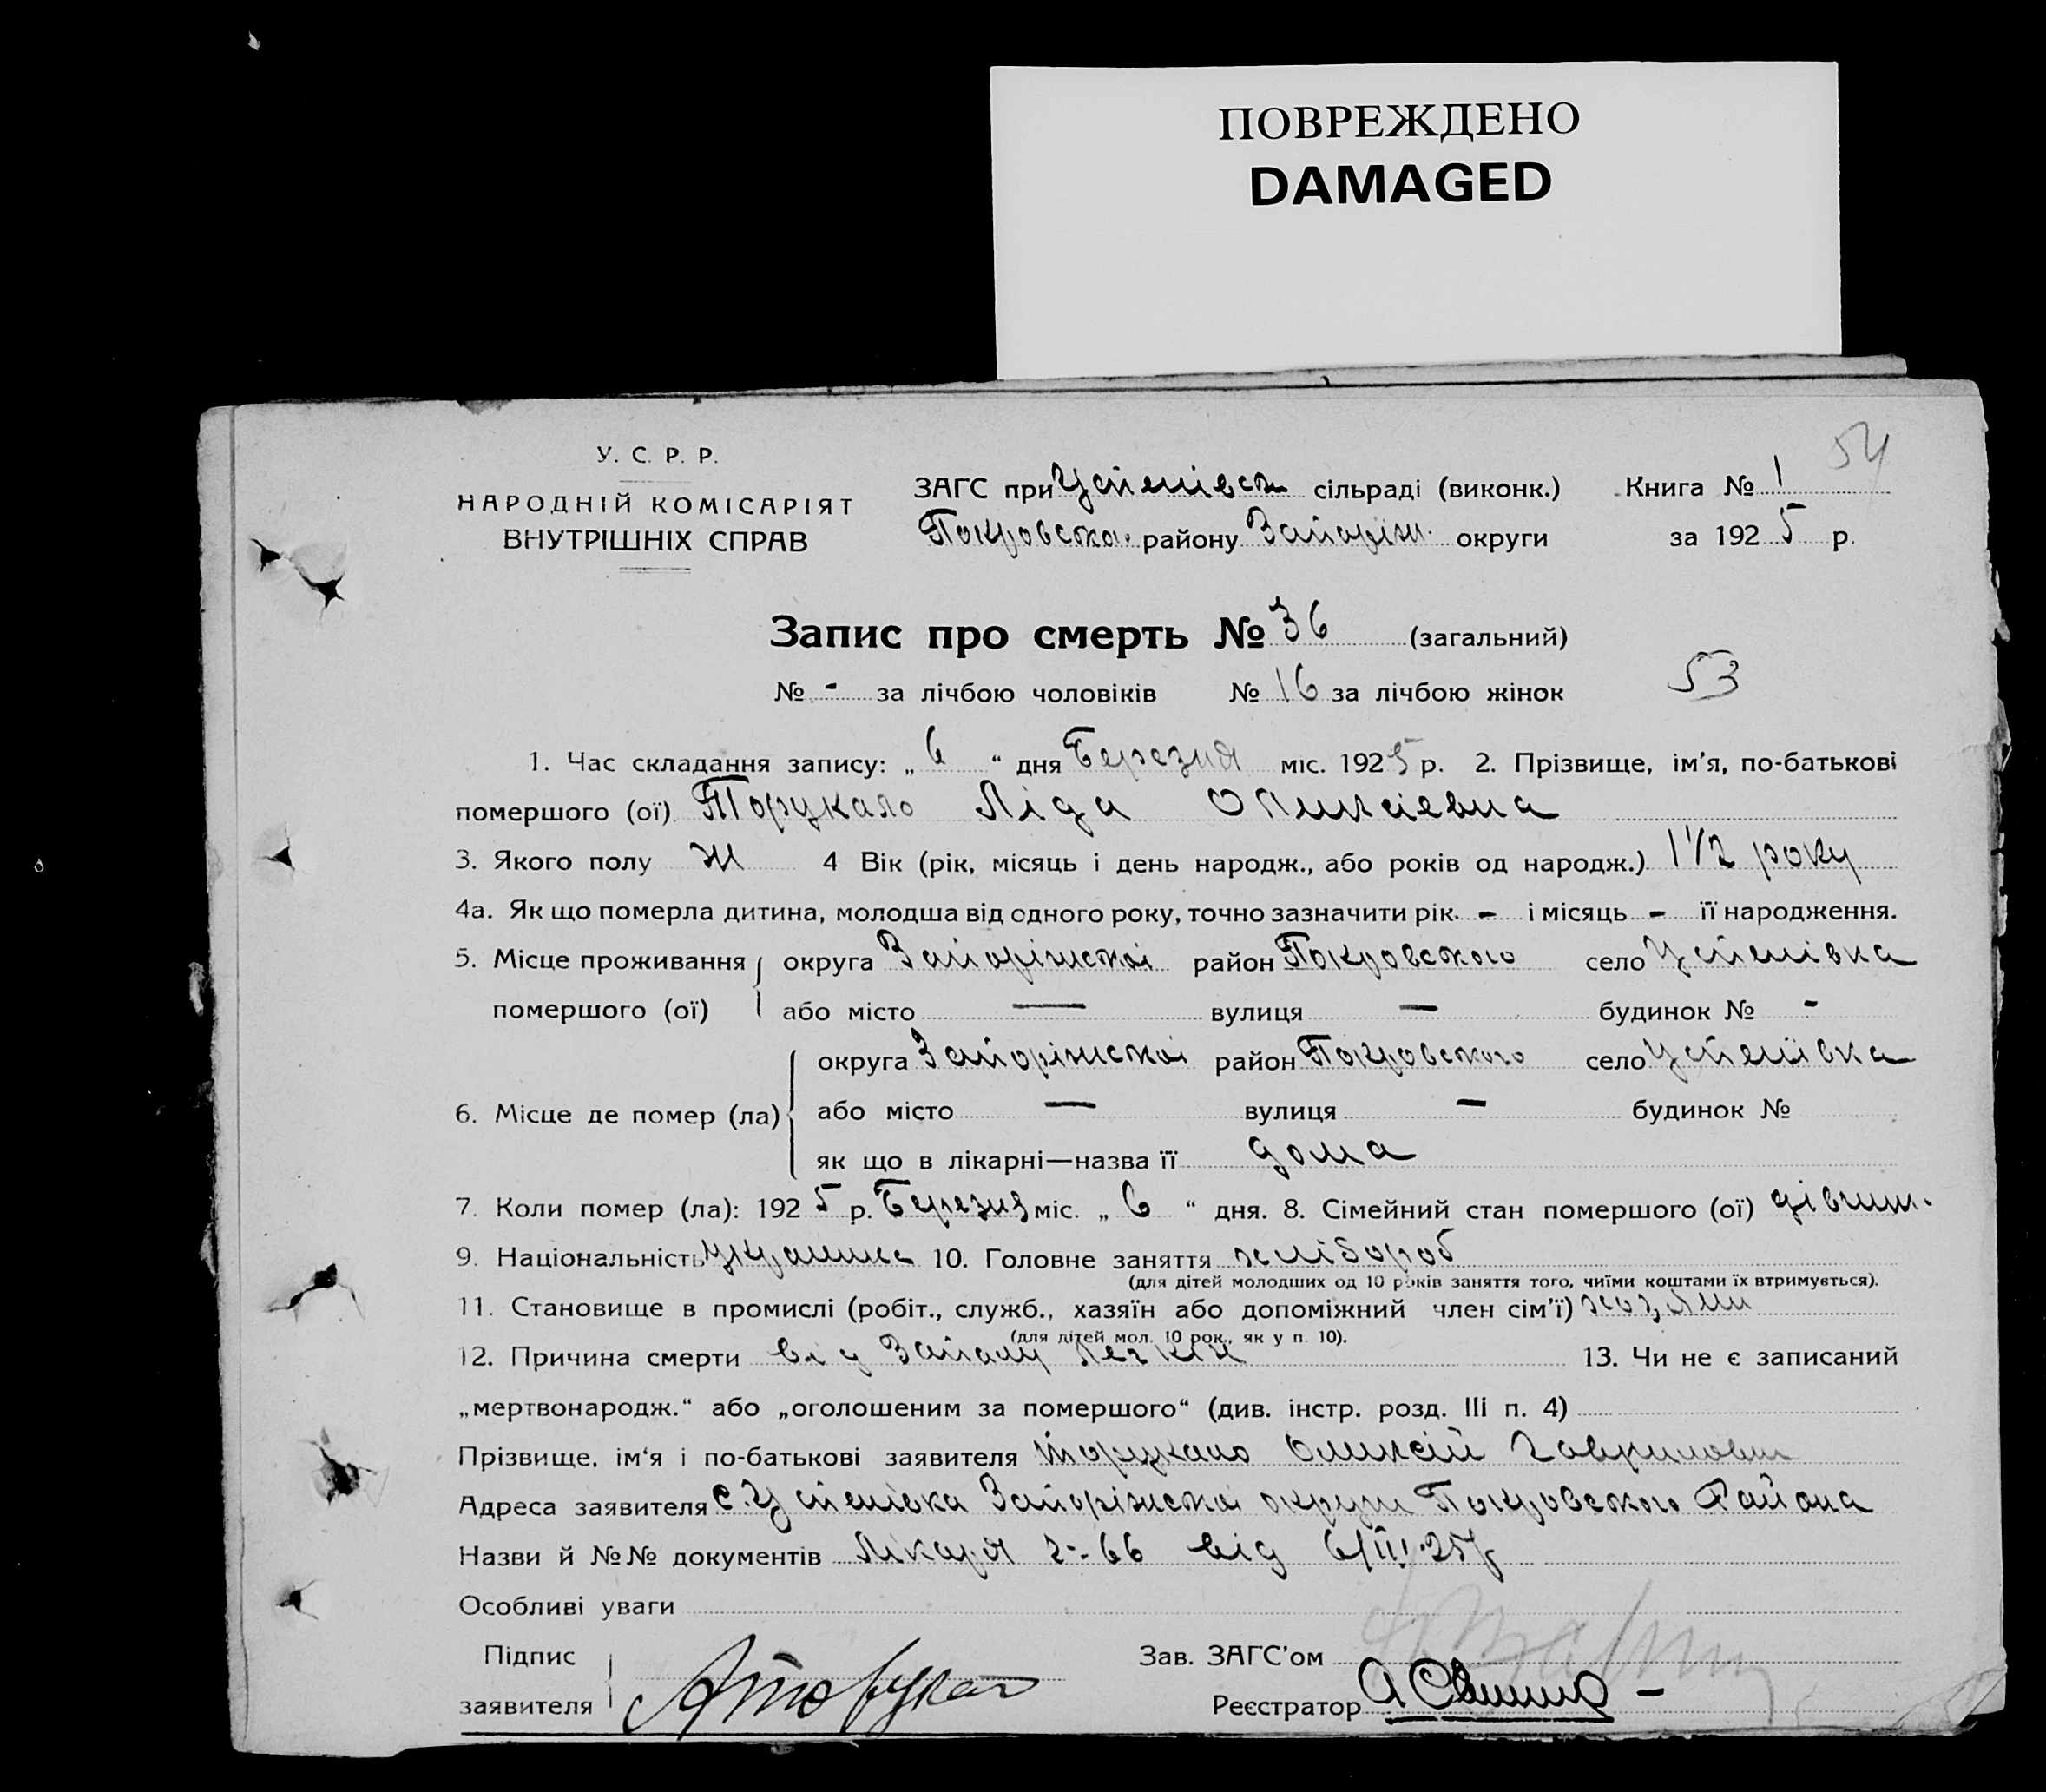 ПОВРЕЖДЕНО
DAMAGED
54
У. С. Р. Р.
НАРОДНІЙ КОМІСАРІЯТ
ВНУТРІШНІХ СПРАВ
ЗАГС при Успенівск сільраді (виконк.) Книга № 1
Покровськ. району Запоріж. округи за 1925 р.
Запис про смерть № 36 (загальний)
№ - за лічбою чоловіків № 16 за лічбою жінок 53
1. Час складання запису: „ 6 “ дня Березня міс. 1925 р. 2. Прізвище, ім'я, по-батькові
помершого (ої) Торукало Ліда Олексієвна
3. Якого полу Ж 4 Вік (рік, місяць і день народж., або років од народж.) 1 1/2 року
4а. Як що померла дитина, молодша від одного року, точно зазначити рік - і місяць - її народження.
5. Місце проживання помершого (ої) округа Запоріжської район Покровського село Успенівка
або місто — вулиця — будинок № -
6. Місце де помер (ла) округа Запоріжської район Покровського село Успенівка
або місто — вулиця — будинок №
як що в лікарні—назва її дома
7. Коли помер (ла): 1925 р. Березня міс. „ 6 “ дня. 8. Сімейний стан помершого (ої) дівчин.
9. Національність украинка 10. Головне заняття хлібороб
(для дітей молодших од 10 років заняття того, чиїми коштами їх втримується).
11. Становище в промислі (робіт., служб., хазяїн або допоміжний член сім'ї) хозяин
(для дітей мол. 10 рок., як у п. 10).
12. Причина смерти від Запалу Легких 13. Чи не є записаний
„мертвонародж.“ або „оголошеним за помершого“ (див. інстр. розд. III п. 4)
Прізвище, ім'я і по-батькові заявителя Торукало Олексій Гаврилович
Адреса заявителя с. Успенівка Запоріжської округи Покровського Района
Назви й №№ документів Лікаря 2-66 від 6/III-25р
Особливі уваги
Підпис заявителя
Зав. ЗАГС'ом
Реєстратор